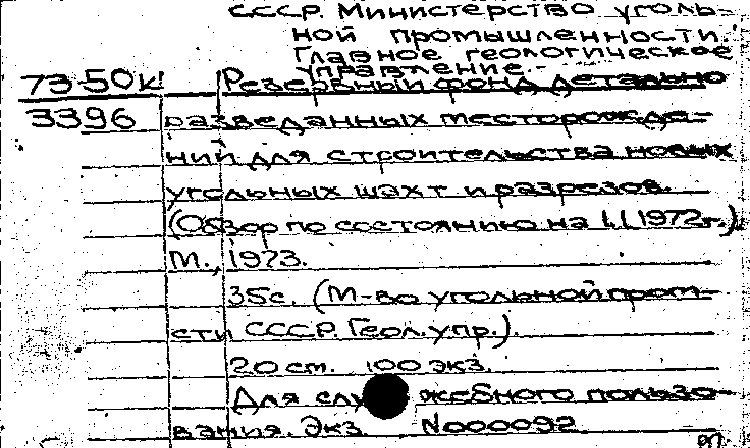 СССР. Министерство уголь-
ной промышленности.
Главное геологическое
управление.
73-50к Резервный фонд детально
3396 разведанных месторожде-
ний для строительства новых
угольных шахт и разрезов.
(Обзор по состоянию на 1.I.1972г.)
М., 1973.
35с. (М-во угольной пром-
сти СССР. Геол. упр.).
20 см. 100 экз.
Для служебного пользо-
вания. Экз. N000092